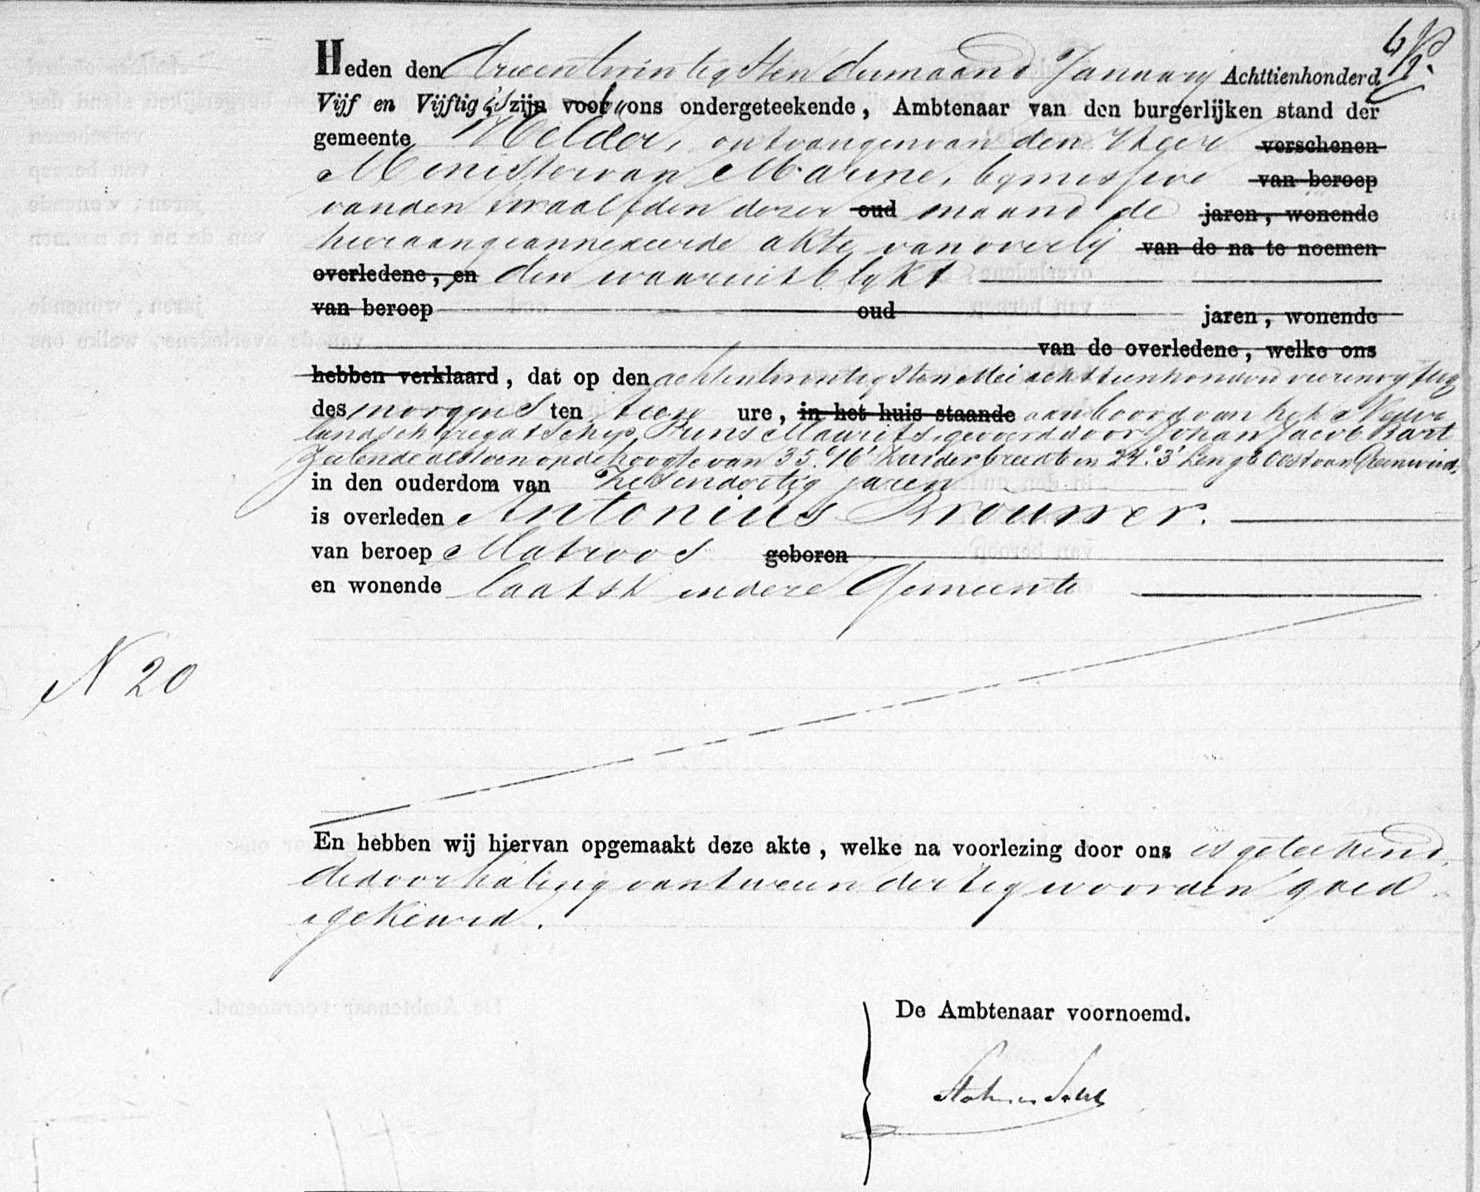 Heden den drieentwintigsten der maand January Achttienhonderd
Vijf en Vijftig is zijn voor by ons ondergeteekende, Ambtenaar van den burgerlijken stand der
gemeente Helder, ontvangen van den Heer verschenen
Minister van Marine, by missive van beroep
van den twaalfden dezer oud maand de jaren, wonende
hieraangeannexeerde akte van overlij van de na te noemen
overledene, en den waaruit blykt
van beroep oud jaren, wonende
van de overledene, welke ons
hebben verklaard, dat op den achtentwintigsten Mei achttienhonderd vierenvyftig
des morgens ten tien ure, in het huis staande aan boord van het Neder
landsch fregat Schip, Prins Maurits, gevoerd door Johan Jacob Bart
Zeilende alstoen op de hoogte van 35° 16' Zuider breedte en 24° 3' Lengte Oost van Greenwich,
in den ouderdom van zesendertig jaren
is overleden Antonius Brouwer.
van beroep Matroos geboren
en wonende laatst in deze Gemeente
N 20
En hebben wij hiervan opgemaakt deze akte, welke na voorlezing door ons is geteekend,
de doorhaling van tweeendertig woorden goed
gekeurd.
De Ambtenaar voornoemd.